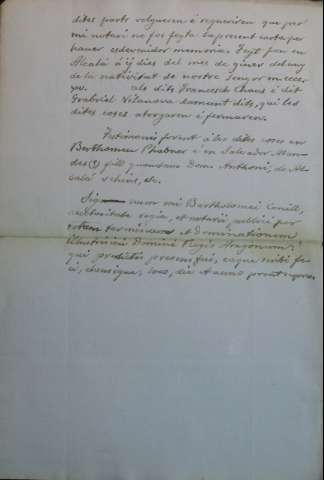 dites parts volgueren é requeriren que per
mi notari ne fos feyta la present carta per
haver esdevenidor memoria. Feyt fon en
Alcalá á ij dies del mes de giner del any
de la nativitat de nostre senyor m.cccc.
xv. als dits Francesch Chaus é dit
Grabriel Vilanova damunt dits, qui les
dites coses atorgaren é fermaren.
Testimonis forent á les dites coses en
Berthomeu é en Salvador Mon-
des (?) fill quondam Dom. Anthoni, de Al-
calá vehins, etc.
Sig num mei Bartholomei Conill,
auctoritate regia, et notarii publici per
totam terram et dominationem
Illustrissimi Domini Regis Aragonum,
qui predictis presens fui, eaque scribi fe-
ci, clausique, loco, die et anno